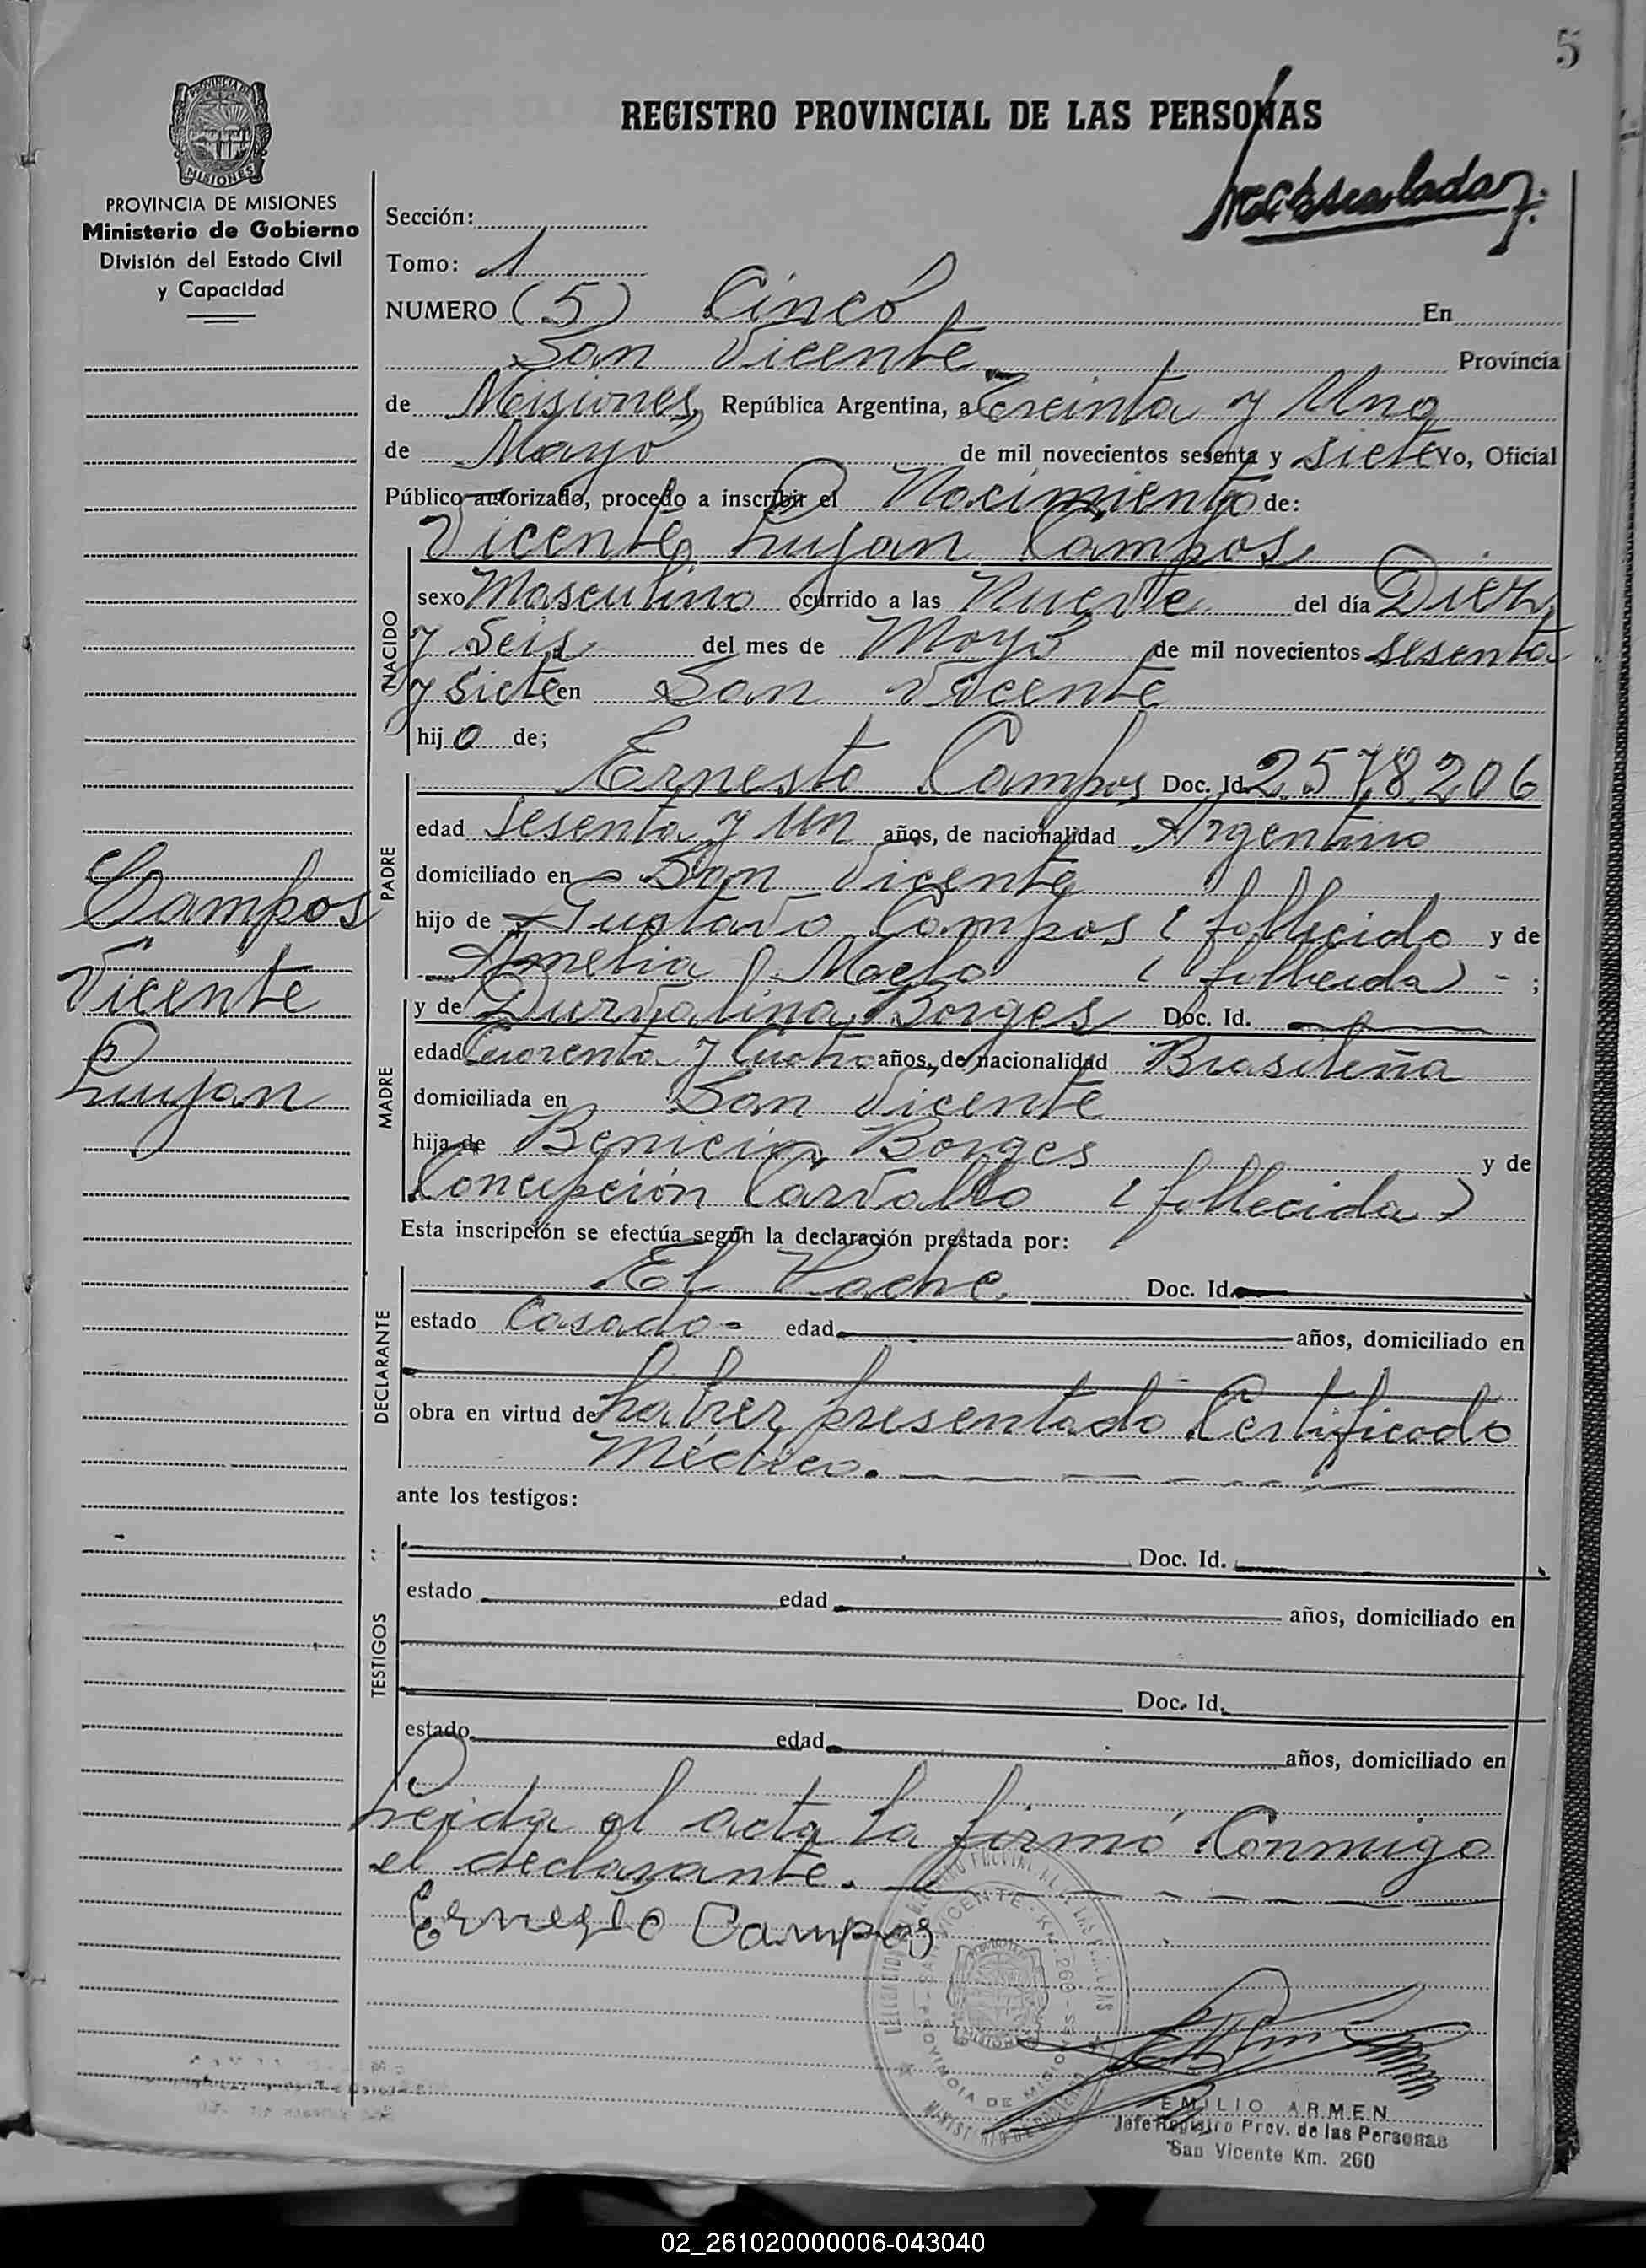 5
REGISTRO PROVINCIAL DE LAS PERSONAS
PROVINCIA DE
MISIONES
PROVINCIA DE MISIONES
Ministerio de Gobierno
División del Estado Civil
y Capacidad
Campos
Vicente
Lujan
Sección:
Tomo: 1
NUMERO (5) Cinco En
San Vicente Provincia
de Misiones, República Argentina, a Treinta y Uno
de Mayo de mil novecientos sesenta y siete Yo, Oficial
Público autorizado, procedo a inscribir el Nacimiento de:
Vicente Lujan Campos
NACIDO
sexo Masculino ocurrido a las Nueve del día Diez
y Seis del mes de Mayo de mil novecientos sesenta
y siete en San Vicente
hijo de;
PADRE
Ernesto Campos Doc. Id. 2.578.206
edad sesenta y Un años, de nacionalidad Argentino
domiciliado en San Vicente
hijo de Gustavo Campos (fallecido y de
Amelia Maelo (fallecida) - ;
MADRE
y de Durvalina Borges Doc. Id.
edad Cuarenta y Cuatro años, de nacionalidad Brasileña
domiciliada en San Vicente
hija de Benicio Borges y de
Concepción Carvallo (fallecida)
Esta inscripción se efectúa según la declaración prestada por:
DECLARANTE
El Padre Doc. Id.
estado Casado - edad años, domiciliado en
obra en virtud de haber presentado Certificado
Médico.
ante los testigos:
TESTIGOS
Doc. Id.
estado edad años, domiciliado en
Doc. Id.
estado edad años, domiciliado en
Leida el acta la firmó Conmigo
el declarante.
Ernesto Campos
SAN VICENTE - KM. 260 - MISIONES
PROVINCIA DE MISIONES
MINISTERIO DE GOBIERNO
EMILIO ARMEN
Jefe Registro Prov. de las Personas
San Vicente Km. 260
02_261020000006-043040